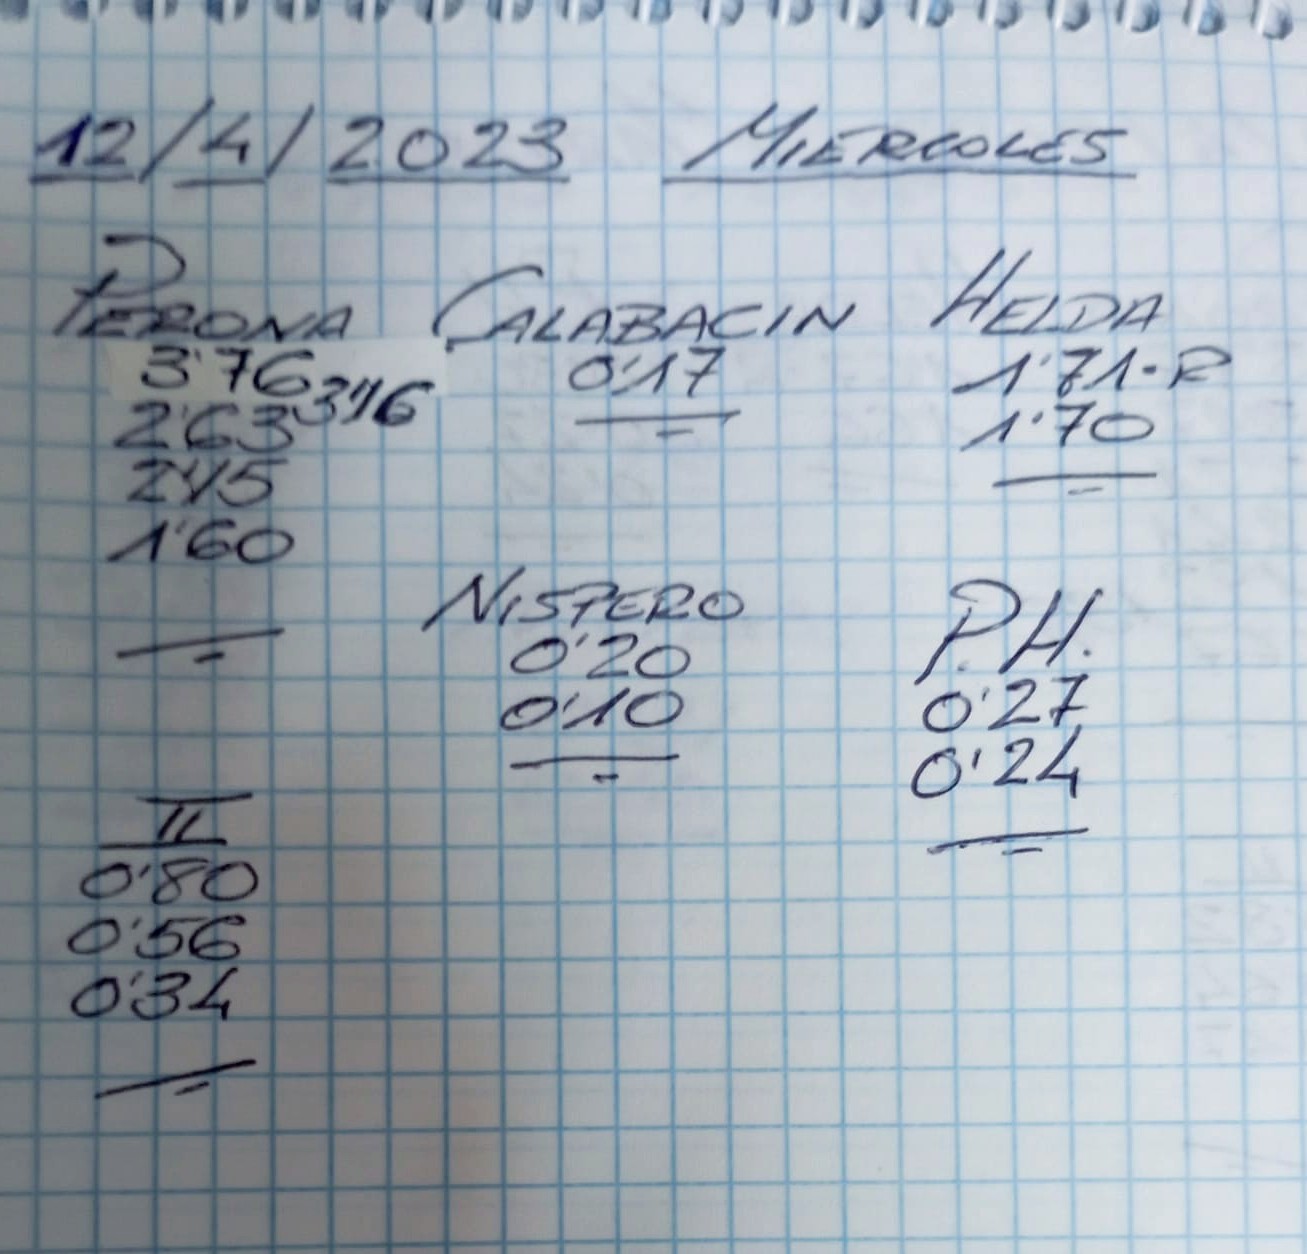 12/4/2023 MIERCOLES
PERONA
3'76
3'16
2'63
2'15
1'60
CALABACIN
0'17
HELDA
1'71-R
1'70
NISPERO
0'20
0'10
P.H.
0'27
0'24
II
0'80
0'56
0'34